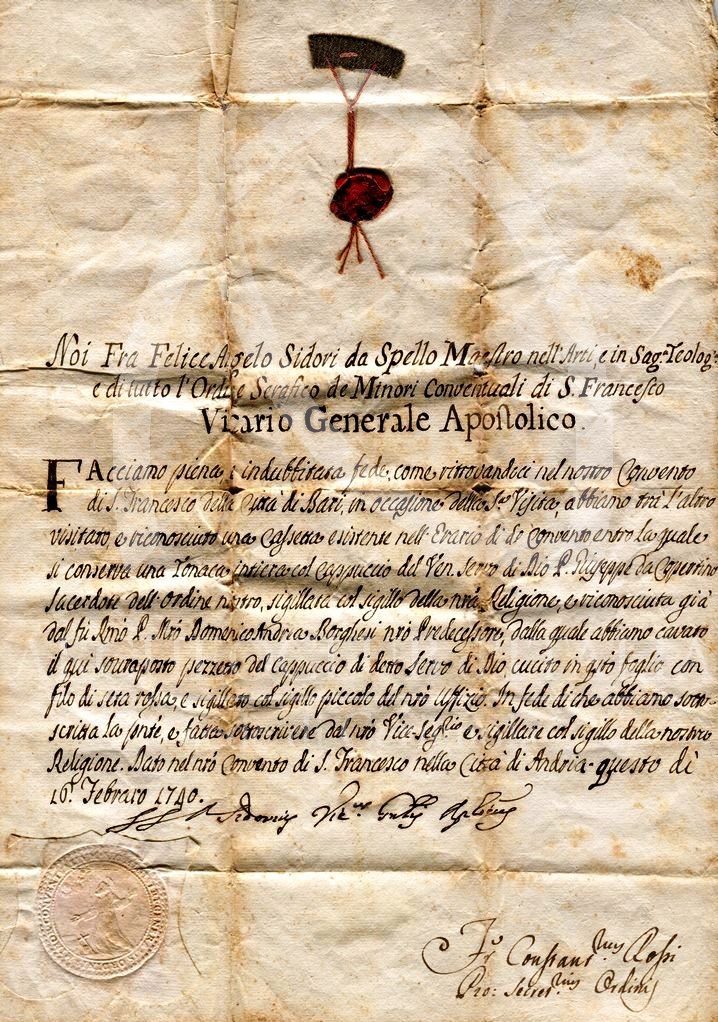 Noi Fra Felice Angelo Sidori da Spello Maestro nell'Arti, e in Sag. Teolog.
e di tutto l'Ordine Serafico de Minori Conventuali di S. Francesco
Vicario Generale Apostolico.
FAcciamo piena, e indubbitata fede, come ritrovandoci nel nostro Convento
di S. Francesco della Città di Bari, in occasione della S. Visita, abbiamo trà l'altro
visitato, e riconosciuto una Cassetta esistente nell'Erario di do Convento entro la quale
si conserva una Tonaca intiera col cappuccio del Ven. Servo di Dio P. Giuseppe da Copertino
Sacerdote dell'Ordine nostro, sigillata col sigillo della nra Religione, e riconosciuta già
dal fù Rmo P. Mro Domenico Andrea Borgheri nro Predecessore, dalla quale abbiamo cavato
il qui sovraposto pezzetto del cappuccio di detto Servo di Dio, cucito in qsto foglio con
filo di seta rossa, e sigillato col sigillo piccolo del nro Uffizio. In fede di che abbiamo sotto-
scritta la pnte, e fatta sottoscrivere dal nro Vice-Seglio e sigillare col sigillo della nostra
Religione. Dato nel nro Convento di S. Francesco nella Città di Andria questo dì
16. Febraro 1740.
Sidorius Vic.us Gnlis Aplicus
Fr Constant.us Rossi
Pro: Secret.ius Ordinis